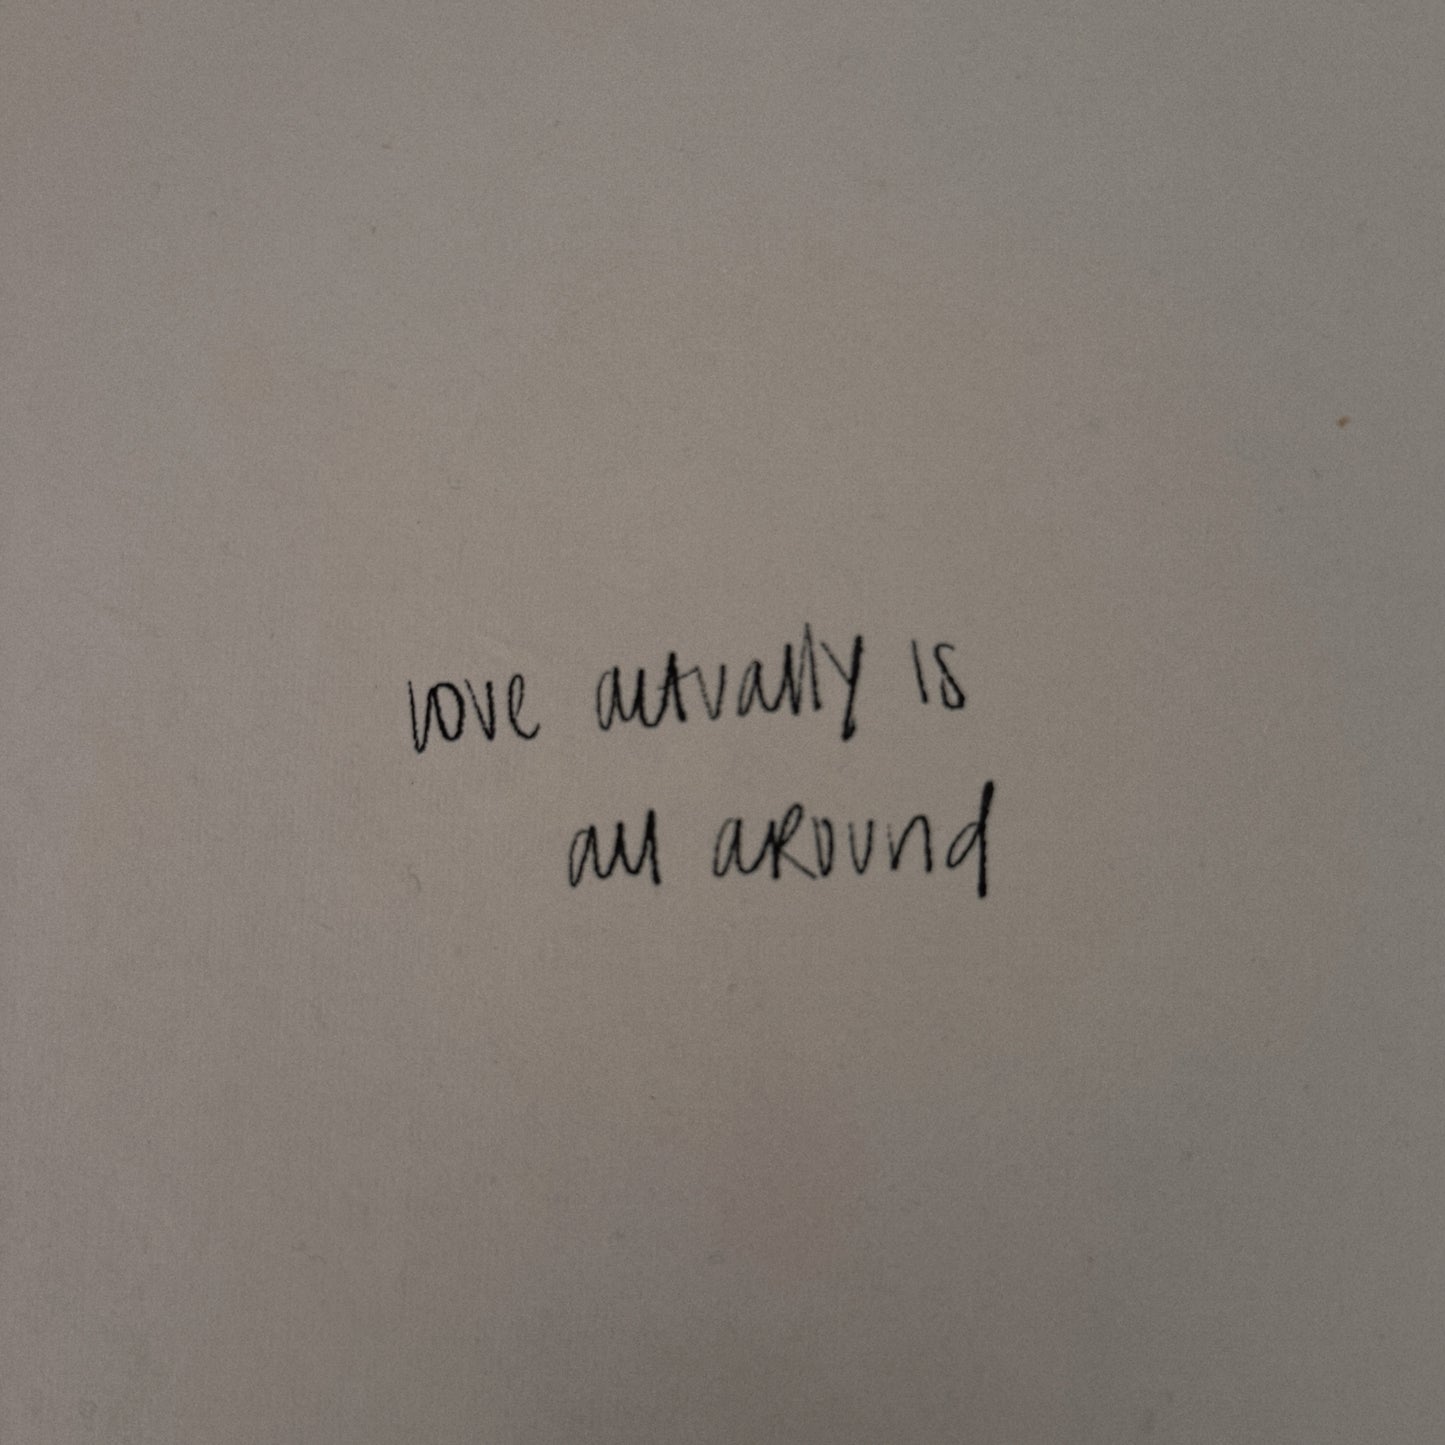 love actually is
all aRound